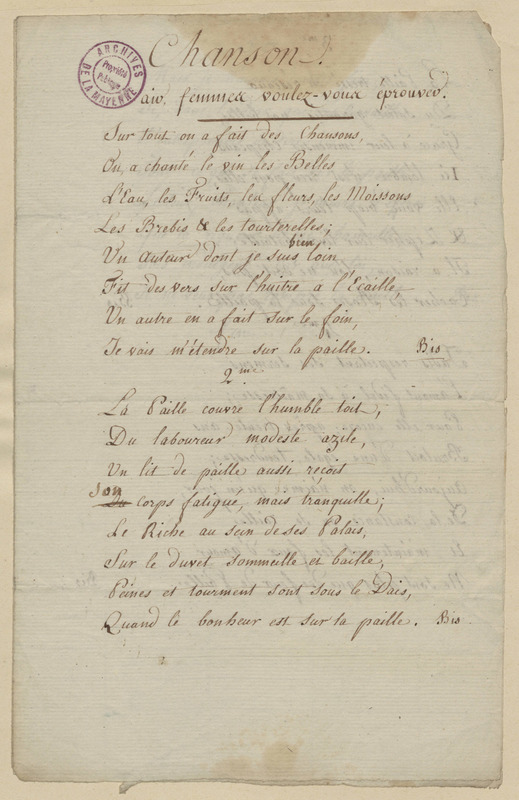 Chanson.
ARCHIVES DE LA MAYENNE
Propriété Publique
air. femmes voulez-vous éprouver.
Sur tout on a fait des Chansons,
On, a chanté le vin les Belles
L'Eau, les Fruits, les fleurs, les Moissons
Les Brebis & les tourterelles;
Un auteur dont je suis bien loin
Fit des vers sur l'huitre à l'Ecaille,
Un autre en a fait sur le foin,
Je vais m'étendre sur la paille. Bis
2me
La Paille couvre l'humble toit,
Du laboureur modeste azile,
Un lit de paille aussi reçoit
Son
Du corps fatigué, mais tranquille;
Le Riche au sein de ses Palais,
Sur le duvet sommeille et baille,
Peines et tourment sont sous le Dais,
Quand le bonheur est sur la paille. Bis